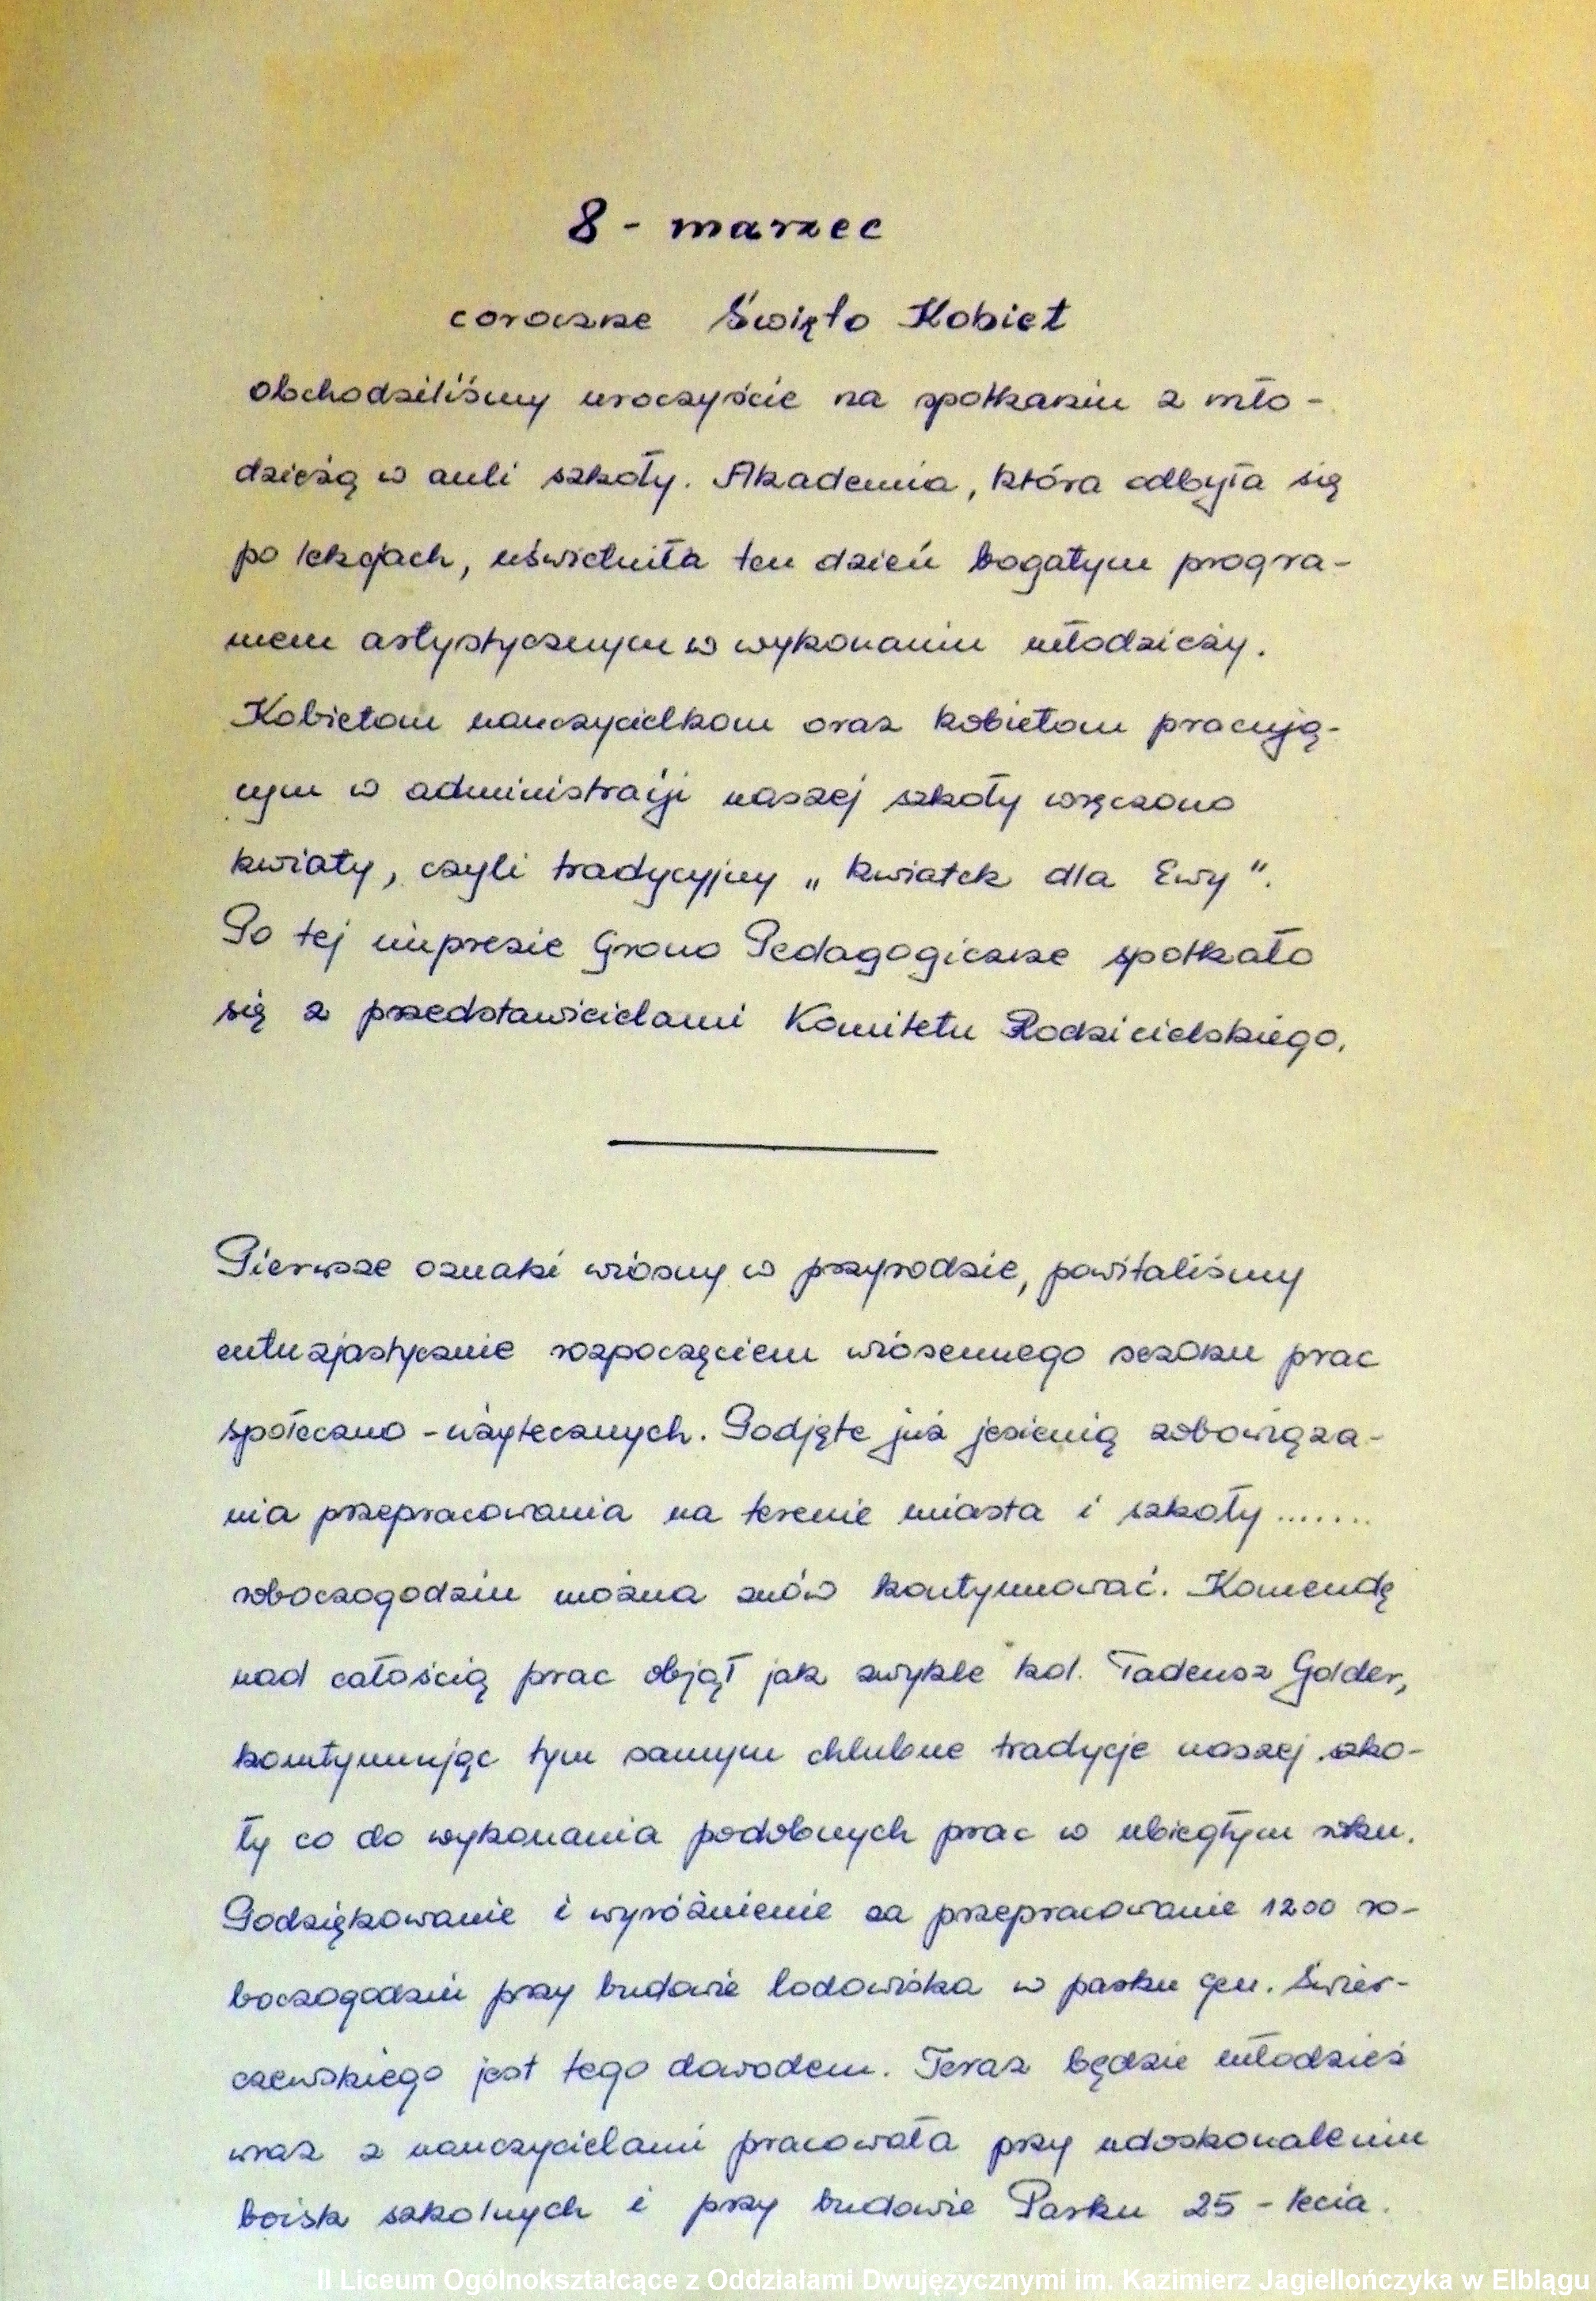 8 - marzec
coroczne Święto Kobiet
obchodziliśmy uroczyście na spotkaniu z mło-
dzieżą w auli szkoły. Akademia, która odbyła się
po lekcjach, uświetniła ten dzień bogatym progra-
mem artystycznym w wykonaniu młodzieży.
Kobietom nauczycielkom oraz kobietom pracują-
cym w administracji naszej szkoły wręczono
kwiaty, czyli tradycyjny „kwiatek dla Ewy".
Po tej imprezie Grono Pedagogiczne spotkało
się z przedstawicielami Komitetu Rodzicielskiego.
Pierwsze oznaki wiosny w przyrodzie, powitaliśmy
entuzjastycznie rozpoczęciem wiosennego sezonu prac
społeczno-użytecznych. Podjęte już jesienią zobowiąza-
nia przepracowania na terenie miasta i szkoły .......
roboczogodzin można znów kontynuować. Komendę
nad całością prac objął jak zwykle kol. Tadeusz Golder,
kontynuując tym samym chlubne tradycje naszej szko-
ły co do wykonania podobnych prac w ubiegłym roku.
Podziękowanie i wyróżnienie za przepracowanie 1200 ro-
boczogodzin przy budowie lodowiska w parku gen. Świer-
czewskiego jest tego dowodem. Teraz będzie młodzież
wraz z nauczycielami pracowała przy udoskonaleniu
boisk szkolnych i przy budowie Parku 25-lecia.
II Liceum Ogólnokształcące z Oddziałami Dwujęzycznymi im. Kazimierz Jagiellończyka w Elblągu